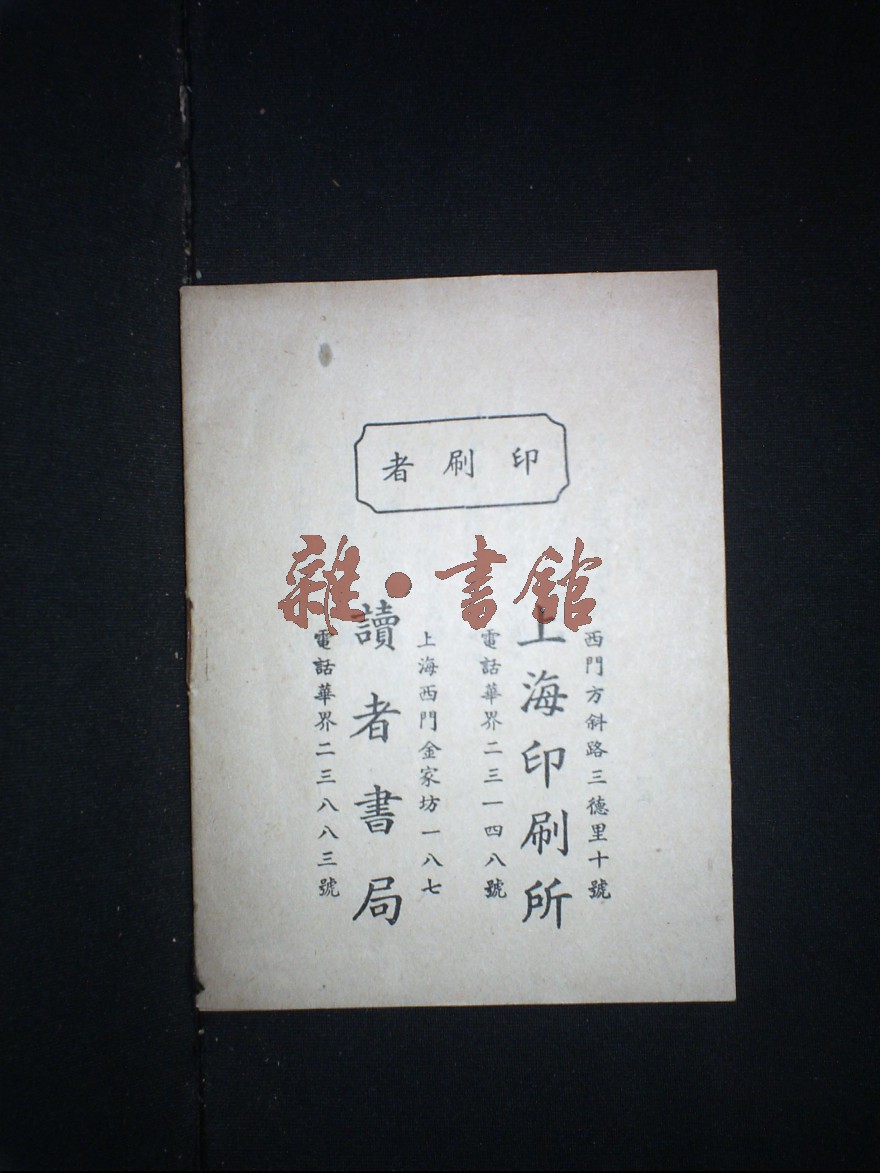 印刷者
雜·書館
西門方斜路三德里十號
上海印刷所
電話華界二三一四八號
上海西門金家坊一八七
讀者書局
電話華界二三八八三號